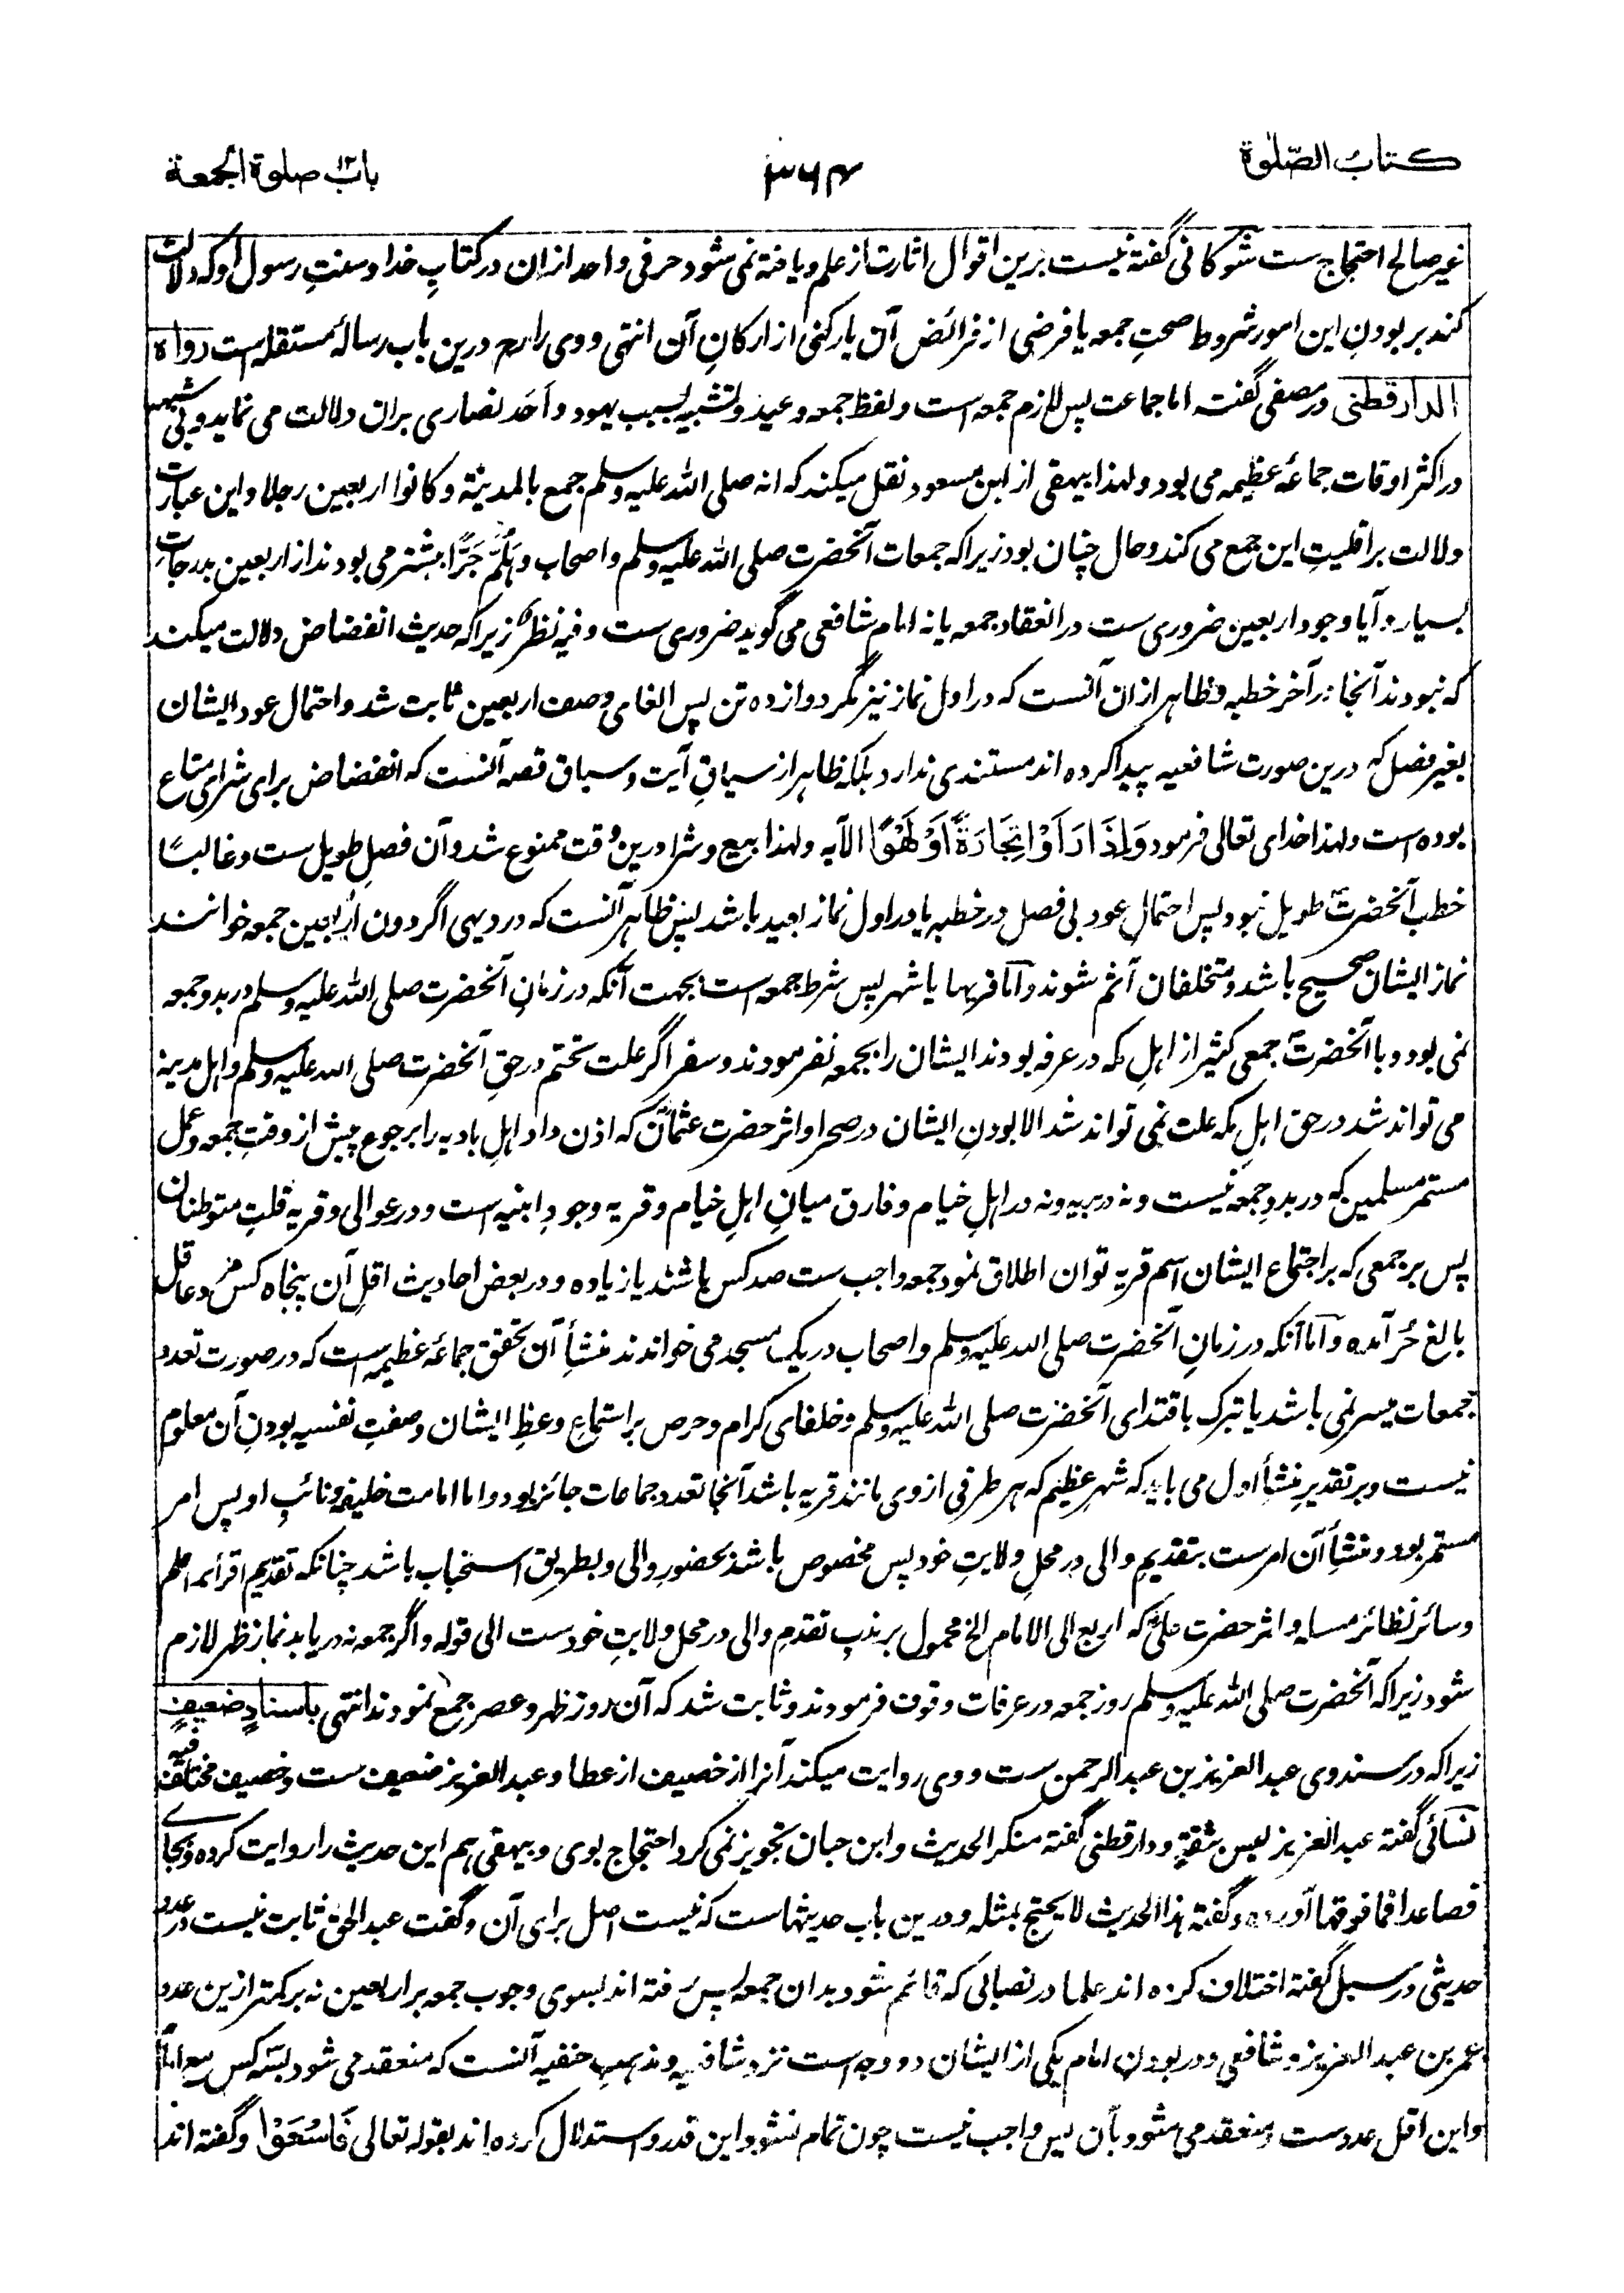 کتاب الصّلوة
۳۶۴
باب۱۲ صلوة الجمعة
غیر صالح احتجاج ست شوکانی گفته نیست برین اقوال اثارت از علم و یافته نمی شود حرفی واحد ازان در کتابِ خدا و سنتِ رسول او که دلالت
کند بر بودنِ این امور شروط صحتِ جمعه یا فرضی از فرائض آن یا رکنی از ارکانِ آن انتهی و وی را رح درین باب رسالهٔ مستقله است رواه
الدارقطنی در مصفی گفته اما جماعت پس لازم جمعه است و لفظ جمعه و عید و تشبیه بسبب یهود و اَحَد نصاری بران دلالت می نماید و بی شبهه
در اکثر اوقات جماعهٔ عظیمه می بود و لهذا بیهقی از ابن مسعود نقل میکند که انه صلی الله علیه وسلم جمع بالمدینة و کانوا اربعین رجلا و این عبارت
دلالت بر اقلیتِ این جمع می کند و حال چنان بود زیرا که جمعات آنحضرت صلی الله علیه وسلم و اصحاب و هَلُمَّ جَرًّا بیشتر می بودند از اربعین بدرجات
بسیار و آیا وجود اربعین ضروری ست در انعقاد جمعه یا نه امام شافعی می گوید ضروری ست و فیه نظر زیرا که حدیث انفضاض دلالت میکند
که نبودند آنجا در آخر خطبه و ظاهر ازان آنست که در اول نماز نیز مگر دوازده تن پس الغای وصف اربعین ثابت شد و احتمال عود ایشان
بغیر فصل که درین صورت شافعیه پیدا کرده اند مستندی ندارد بلکه ظاهر از سیاقِ آیت و سباق قصه آنست که انفضاض برای شرای متاع
بوده است و لهذا خدای تعالی فرمود وَاِذَا رَاَوْا تِجَارَةً اَوْ لَهْوًا الآیه و لهذا بیع و شرا درین وقت ممنوع شد و آن فصلِ طویل ست و غالبًا
خطب آنحضرتؐ طویل نبود پس احتمال عود بی فصل در خطبه یا در اول نماز بعید باشد پس ظاهر آنست که در دیهی اگر دون اربعین جمعه خوانند
نماز ایشان صحیح باشد و متخلفان آثم شوند و اما قریها یا شهر پس شرط جمعه است بجهت آنکه در زمانِ آنحضرت صلی الله علیه وسلم در بدو جمعه
نمی بود و با آنحضرتؐ جمعی کثیر از اهلِ مکه در عرفه بودند ایشان را بجمعه نفرمودند و سفر اگر علت تختم در حقِ آنحضرت صلی الله علیه وسلم و اهل مدینه
می تواند شد در حق اهلِ مکه علت نمی تواند شد الا بودنِ ایشان در صحرا و اثر حضرت عثمانؓ که اذن داد اهلِ بادیه را برجوع پیش از وقتِ جمعه و عمل
مستمر مسلمین که در بدو جمعه نیست و نه در بریه و نه در اهلِ خیام و فارق میانِ اهلِ خیام و قریه وجودِ ابنیه است و در عوالی و قریه قلتِ متوطنان
پس بر جمعی که بر اجتماع ایشان اسم قریه توان اطلاق نمود جمعه واجب ست صد کس باشند یا زیاده و در بعض احادیث اقلِ آن پنجاه کس مرد عاقل
بالغ حُر آمده و اما آنکه در زمانِ آنحضرت صلی الله علیه وسلم و اصحاب در یک مسجد می خواندند منشأِ آن تحقق جماعهٔ عظیمه ست که در صورت تعدد
جمعات میسر نمی باشد یا تبرک باقتدای آنحضرت صلی الله علیه وسلم و خلفای کرام و حرص بر استماعِ وعظِ ایشان و صفتِ نفسیه بودنِ آن معلوم
نیست و بر تقدیر منشأِ اول می باید که شهرِ عظیم که هر طرفی از وی مانند قریه باشد آنجا تعدد جماعات جائز بود و اما امامت خلیفه و نائبِ او پس امر
مستمر بود و منشأِ آن امرست بتقدیمِ والی در محلِ ولایتِ خود پس مخصوص باشد بحضورِ والی و بطریق استحباب باشد چنانکه تقدیم اقرأ و اعلم
و سائر نظائر مساله و اثر حضرت علیؓ که اربع الی الامام الخ محمول بر ندبِ تقدمِ والی در محل ولایتِ خود ست الی قوله و اگر جمعه نه دریابد نمازِ ظهر لازم
شود زیرا که آنحضرت صلی الله علیه وسلم روز جمعه در عرفات وقوف فرمودند و ثابت شد که آن روز ظهر و عصر جمع نمودند انتهی باسنادٍ ضعیفٍ
زیرا که در سند وی عبد العزیز بن عبد الرحمن ست و وی روایت میکند آنرا از خصیف از عطا و عبد العزیز ضعیف ست و خصیف مختلف فیه
نسائی گفته عبد العزیز لیس بثقةٍ و دارقطنی گفته منکر الحدیث و ابن حبان تجویز نمی کرد احتجاج بوی و بیهقی هم این حدیث را روایت کرده و بجای
فصاعدا فما فوقها آورده و گفته هذا الحدیث لا یحتج بمثله و درین باب حدیثهاست که نیست اصل برای آن و گفت عبد الحق ثابت نیست در عدد
حدیثی در سبل گفته اختلاف کرده اند علما در نصابی که قائم شود بدان جمعه پس رفته اند بسوی وجوب جمعه بر اربعین نه بر کمتر ازین عدد
عمر بن عبد العزیز و شافعی و در بودن امام یکی از ایشان دو وجه است نزدِ شافعیه و مذهبِ حنفیه آنست که منعقد می شود بسه کس مع امام
و این اقل عددست منعقد می شود بآن پس واجب نیست چون تمام نشود این قدر و استدلال کرده اند بقوله تعالی فَاسْعَوْا و گفته اند